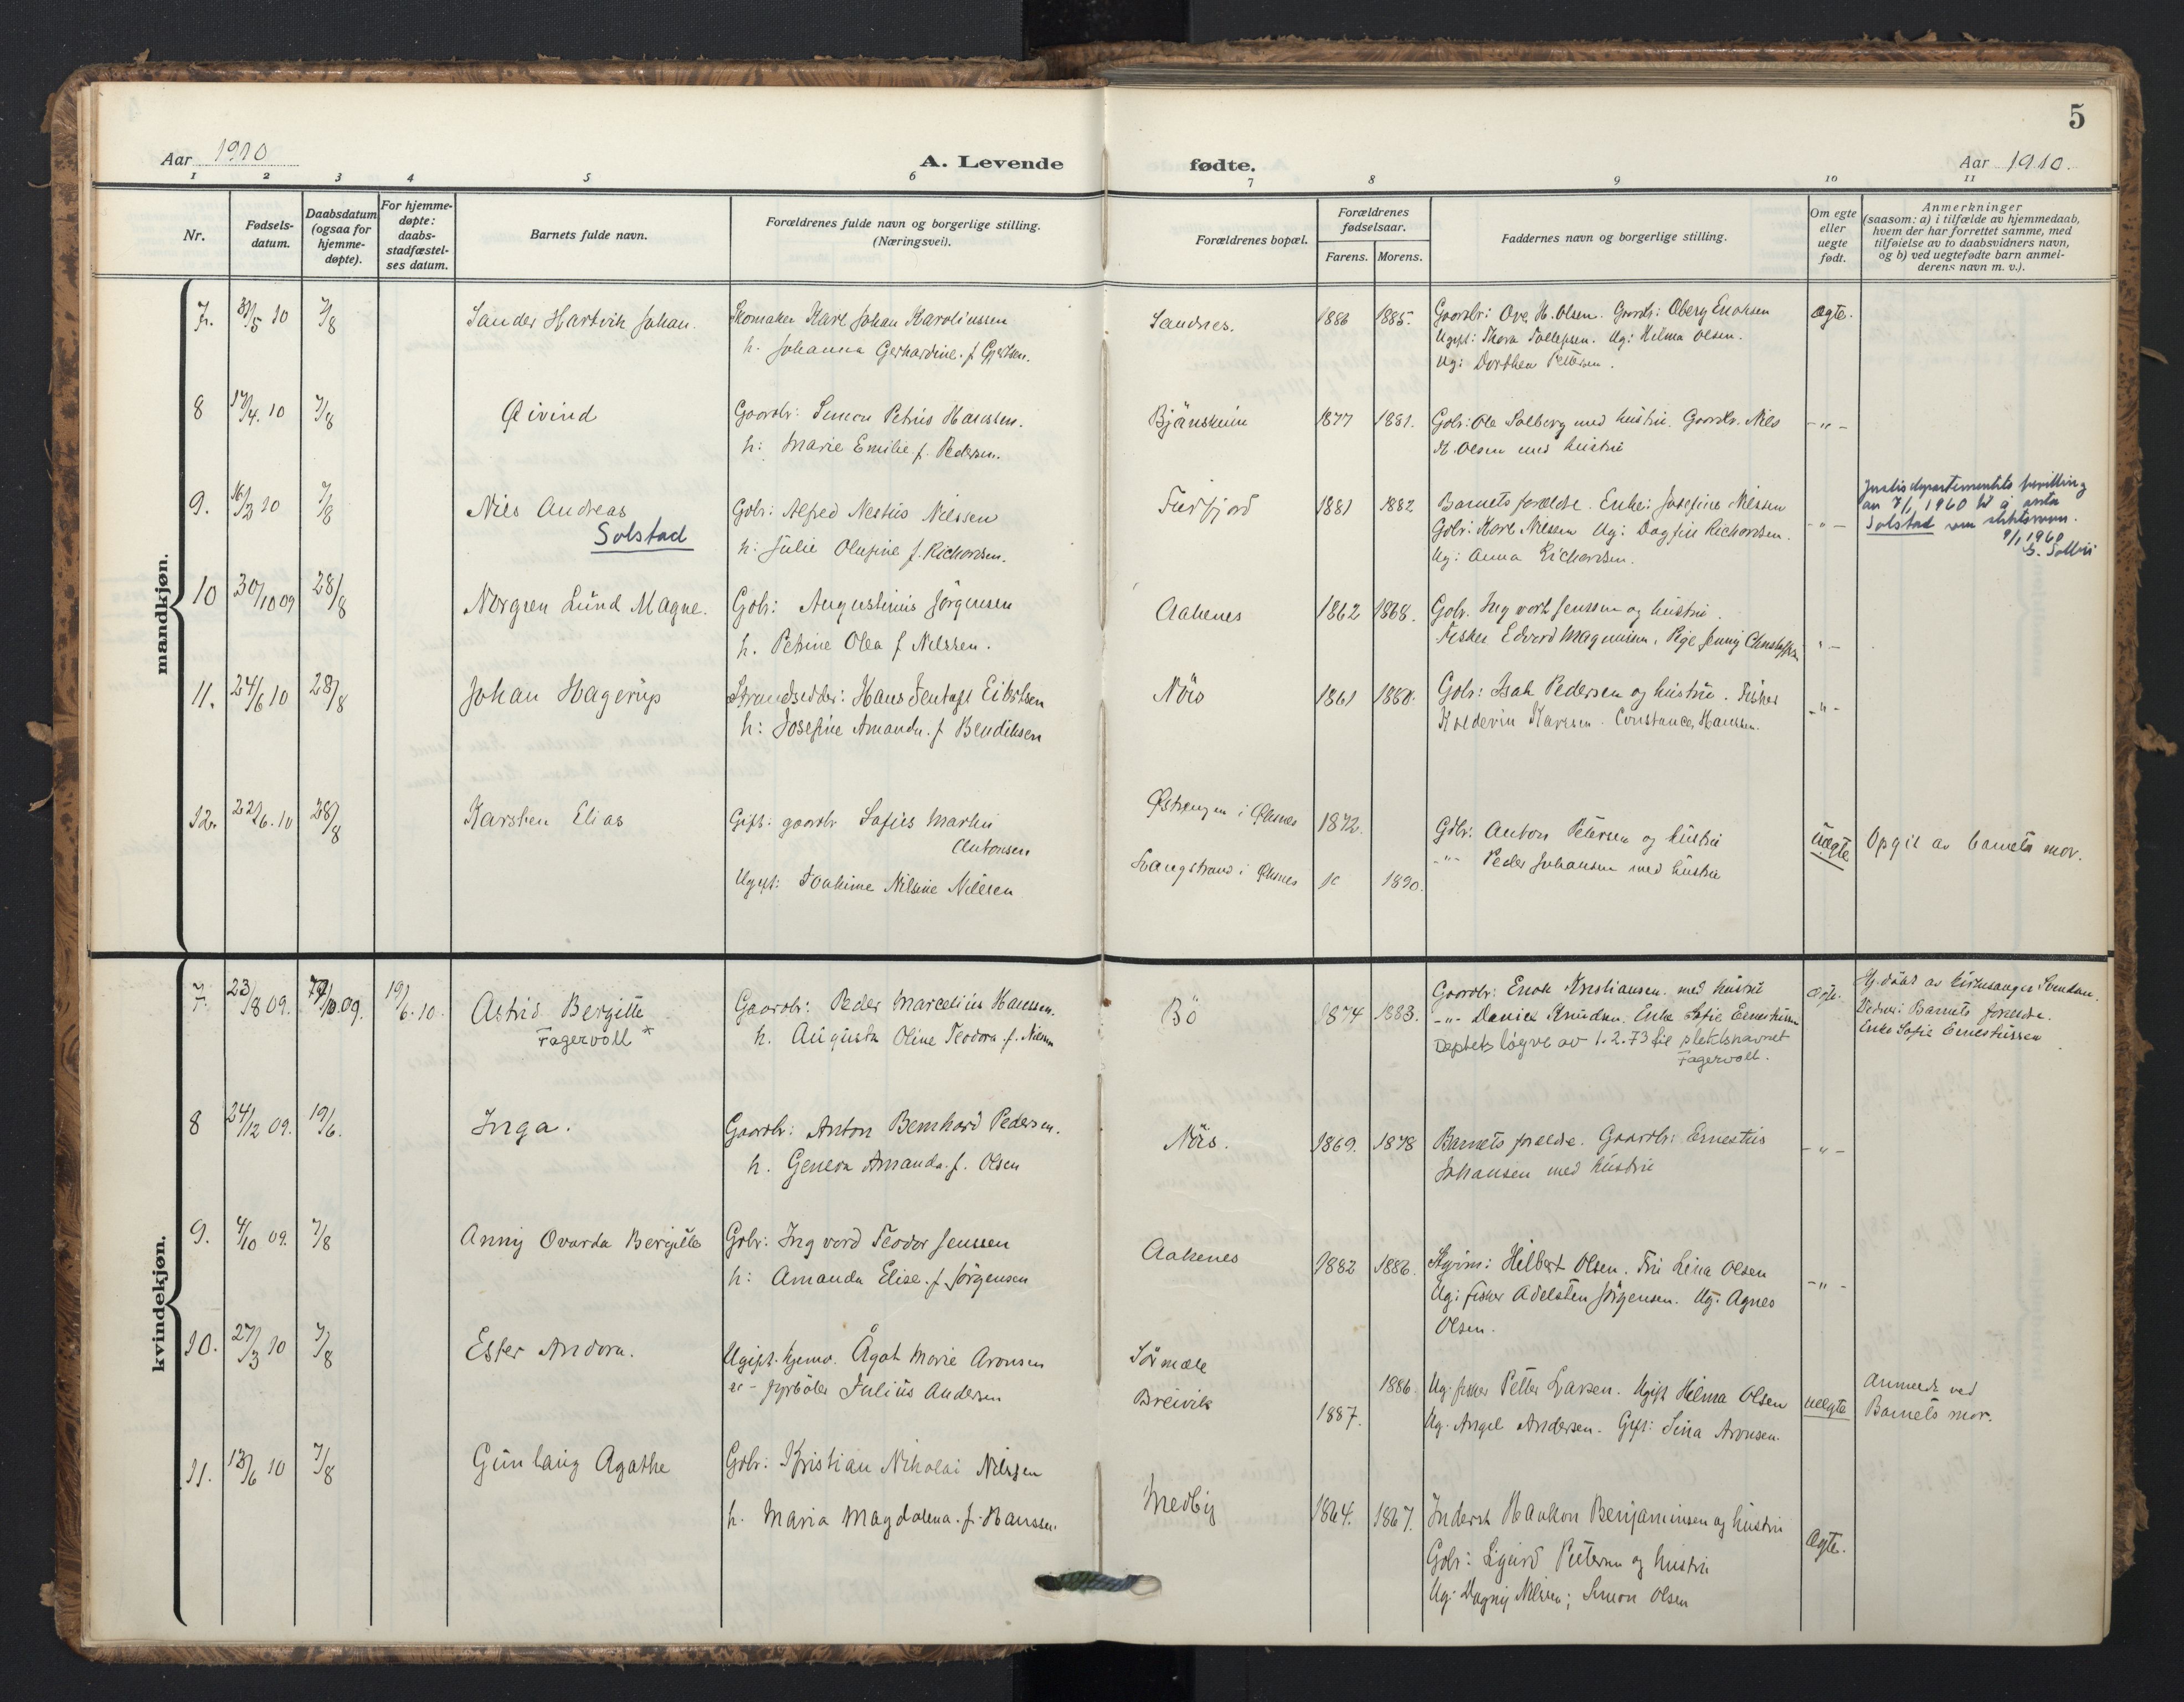 5
Aar 1910
A. Levende
fødte.
Aar 1910.
1 2 3 4 5 6 7 8 9 10 11
Nr.
Fødsels-
datum.
Daabsdatum
(ogsaa for
hjemme-
døpte).
For hjemme-
døpte:
daabs-
stadfæstel-
ses datum.
Barnets fulde navn.
Forældrenes fulde navn og borgerlige stilling.
(Næringsvei).
Forældrenes bopæl.
Forældrenes
fødselsaar.
Farens. Morens.
Faddernes navn og borgerlige stilling.
Om egte
eller
uegte
født.
Anmerkninger
(saasom: a) i tilfælde av hjemmedaab,
hvem der har forrettet samme, med
tilføielse av to daabsvidners navn,
og b) ved uegtefødte barn anmel-
derens navn m. v.).
mandkjøn.
7. 7/8
Sander Hartvik Johan.
Skomaker Karl Johan Karoliussen
h. Johanna Gerhardine f. Gjertsen.
Sandnes.
1886 1885.
Gaardbr: Ove H. Olsen. Gaardb: Oberg Enoksen
Ugift: Thora Tollefsen. Ug: Hilma Olsen.
Ug: Dorthea Pettersen.
Ægte.
8 17/4.10 7/8
Øivind
Gaardbr: Simon Petrus Hanssen.
h: Marie Emilie f. Pedersen.
Bjånskinn
1877 1881.
Gbr: Ole Solberg med hustru. Gaardb. Nils
K. Olsen med hustru
-"-
9. 16/3 10 7/8
Nils Andreas
Solstad
Gbr: Alfred Nestus Nilssen
h: Julie Olufine f. Richardsen.
1881 1882
Barnets forældre. Enke: Josefine Nilssen
Gbr: Karl Nilsen Ug: Dagfin Richardsen.
Ug: Anna Richardsen.
-"-
Justisdepartementets bevilling
av 7/1 1960 til å anta
Solstad som slektsnavn.
9/1 1960
10 30/10 09 28/8
Norgren Lund Magne.
Gbr: Augustinus Jørgensen
h. Petrine Olea f Nilssen.
Aakenes
1862 1868.
Gbr. Ingvart Jenssen og hustru.
Fisker Edvard Magnussen, Pige Jenny
"-
11. 24/6 10 28/8
Johan Hagerup
Strandsidder: Hans Jentoft Eilertsen
h: Josefine Amanda f Bendiksen
Nörs
1861 1880.
Gbr: Isak Pedersen og hustru. Fisker
Kolderin Karlsen. Constance Hanssen.
-"-
12. 22/6.10 28/8
Karsten Elias
Gift: gaardbr Sofus Martin
Antonsen
Ugift: Joakime Nilsine Nilssen
i Øksnes
Langstrand i Øksnes
1872.
1890.
Gbr: Anton Petersen og hustru
-"- Peder Johansen med hustru
Uægte
Opgit av barnets mor.
kvindekjøn.
7. 23/8 09. 19/6.10.
Astrid Bergitte
Fagervoll *
Gaardbr: Peder Marcelius Hanssen.
h. Augusta Oline Teodora f. Nilssen
Bö
1874 1883.
Gaardbr: Enok Kristiansen. med hustru
-"- Daniel Knudsen. Enke Sofie Ernestussen
Deptets løyve av 1.2.73 til slektsnavnet
Fagervoll.
Ægte.
Hj. døbt av kirkesanger
Vidner: Barnets forældre.
Enke Sofie Ernestussen
8 24/12 09. 19/6.
Inga.
Gaardbr: Anton Bernhard Pedersen.
h. Geneva Amanda f. Olsen
Nörs.
1869. 1878
Barnets forældre. Gaardbr: Ernestus
Johansen med hustru
-"-
9. 4/10 09. 7/8
Anny Ovarda Bergitte
Gbr: Ingvard Teodor Jenssen
h: Amanda Elise f. Jørgensen
Aakenes
1882 1886.
Hilbert Olsen. Fru Lina Olsen
Ug: fisker Adelsten Jörgensen. Ug: Agnes
Olsen.
-"-
10. 27/3 10 7/8
Ester Andora.
Ugift. hjemv. Ågot Marie Aronsen
fyrböter Julius Andersen
Sörmæle
Breivik
1886.
1887.
Ug. fisker Petter Larsen. Ugift Hilma Olsen
Ug. Angel Andersen. Gift: Lina Aronsen.
uægte
Anmeldt ved
Barnets mor.
11. 13/6 10 7/8
Gunlaug Agathe
Gbr: Kristian Nikolai Nilssen
h. Maria Magdalena f. Hanssen.
Medby
1864. 1867.
Inderst Haakon Benjaminsen og hustru
Gbr: Sigurd Petersen og hustru
Ug: Dagny Nilssen; Simon Olsen
Ægte.